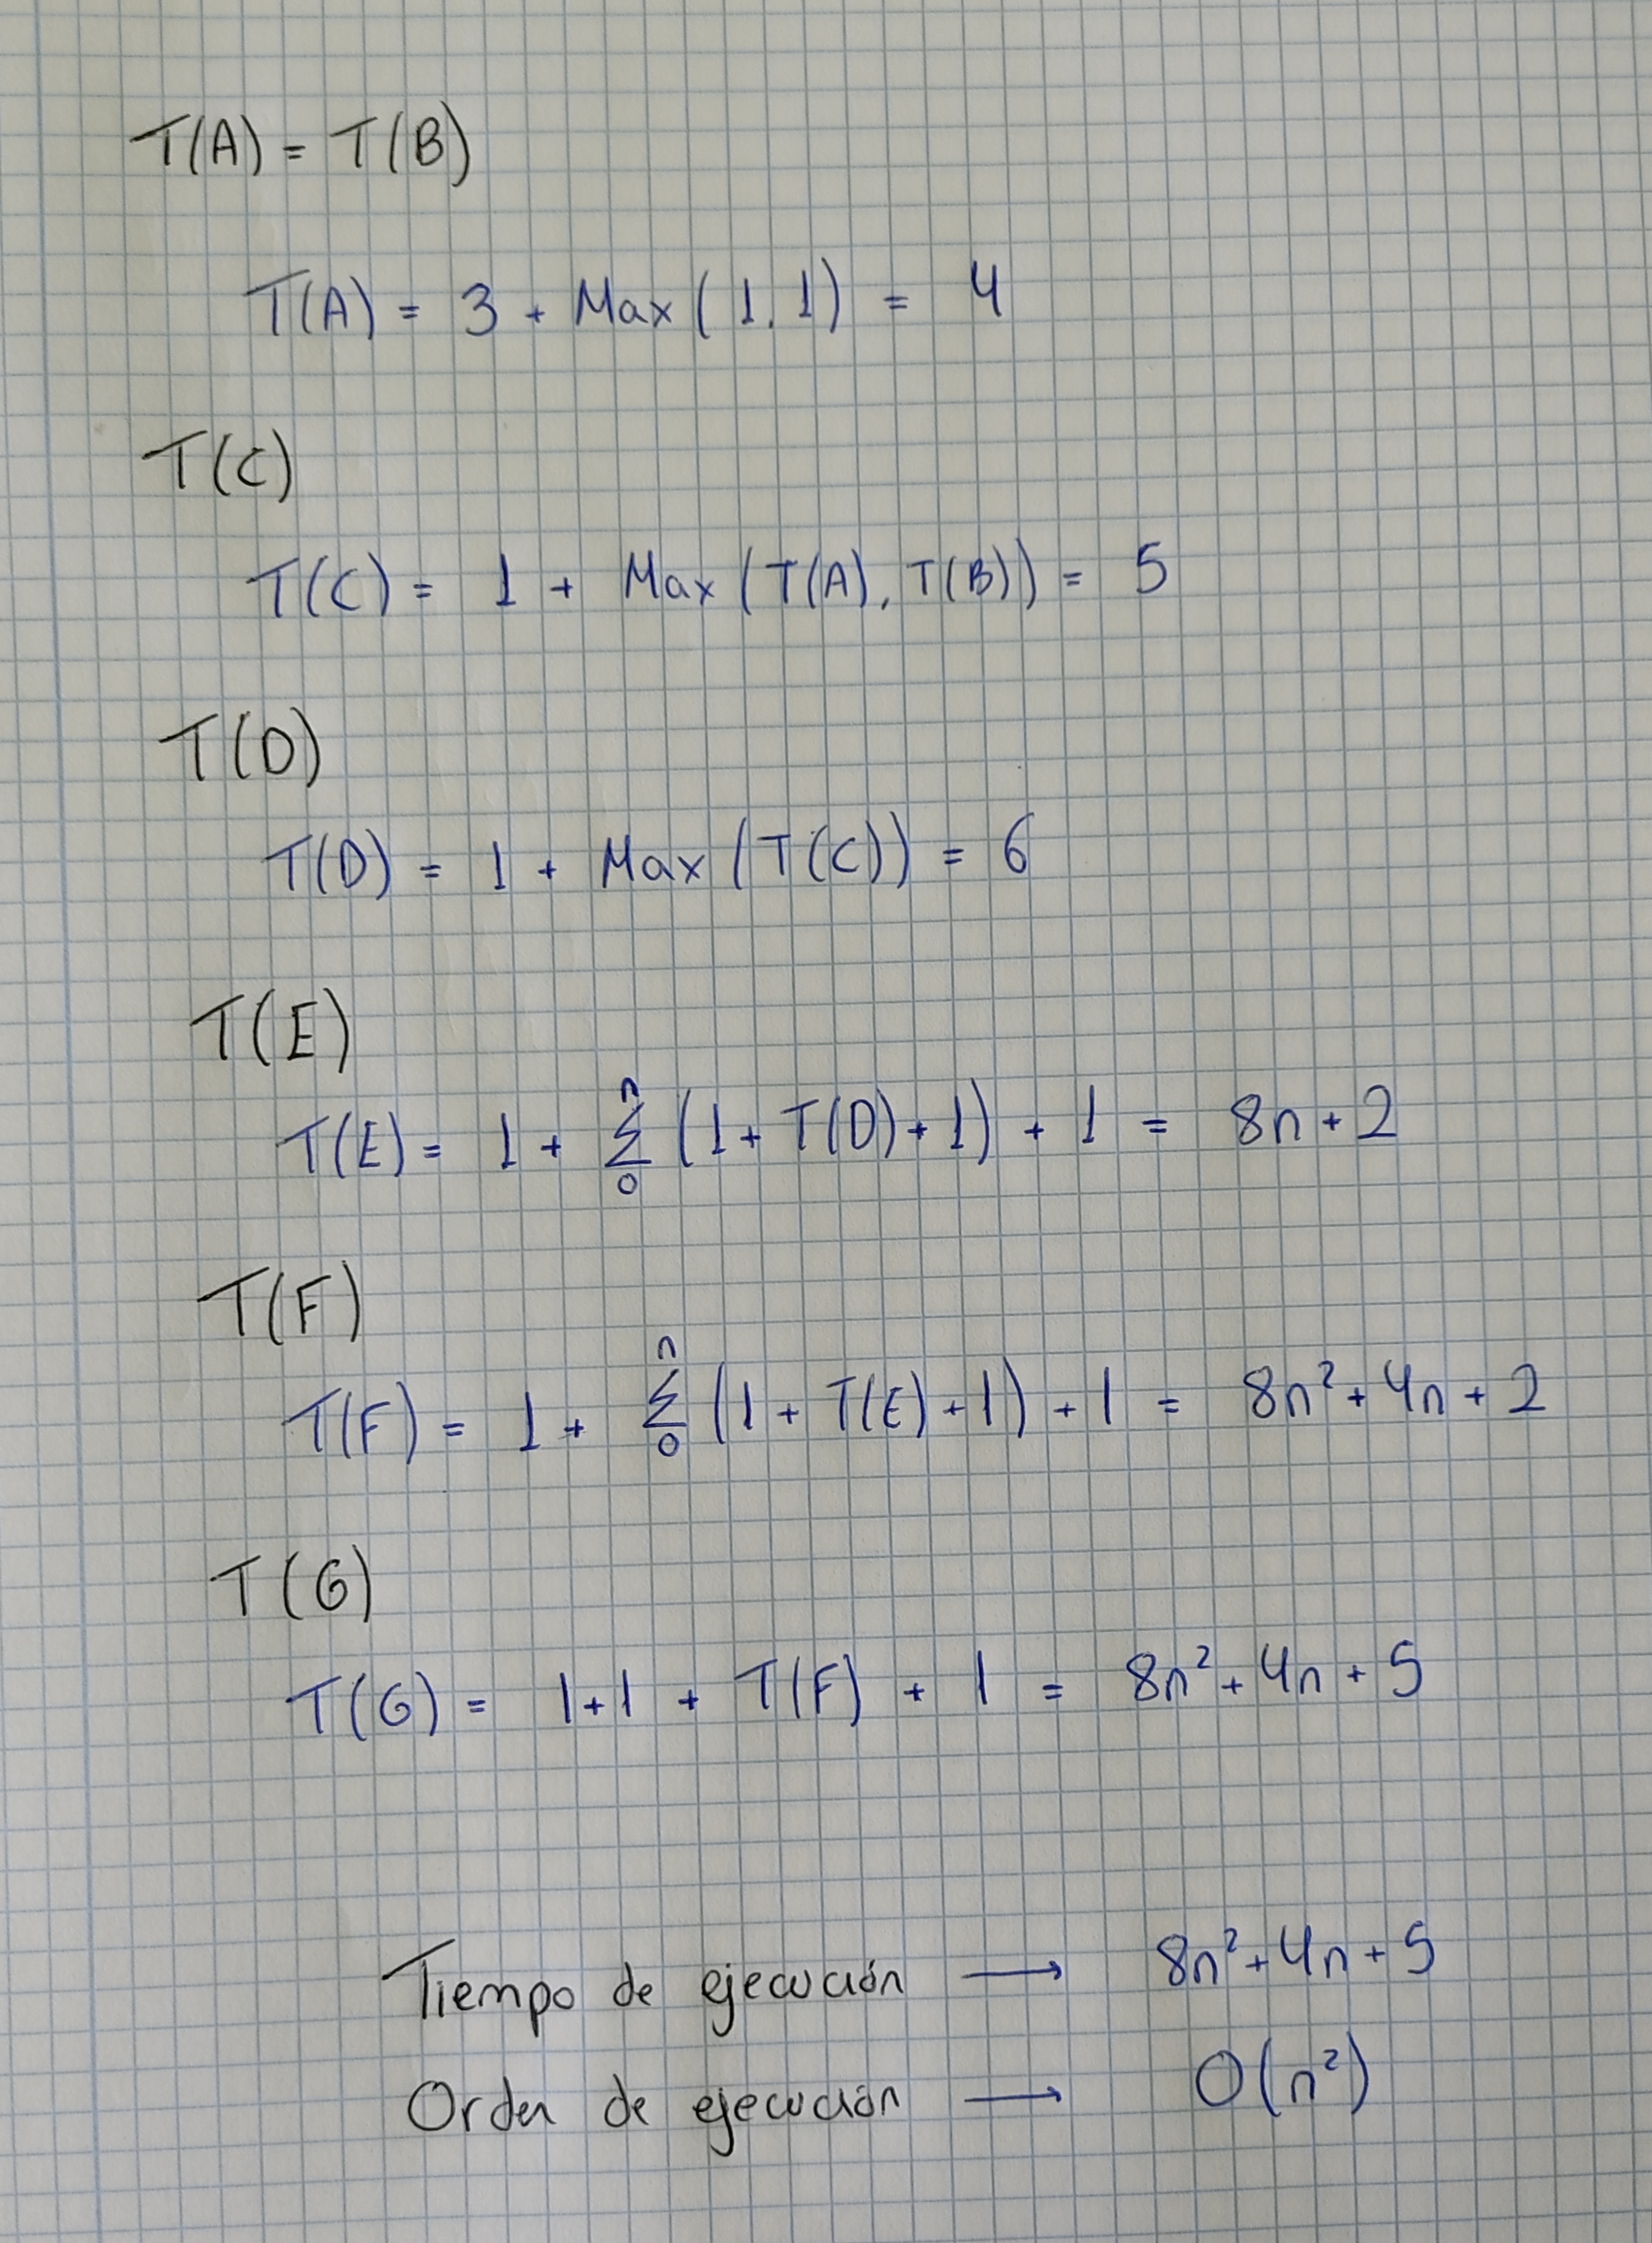 T(A) = T(B)
T(A) = 3 + Max(1,1) = 4
T(C)
T(C) = 1 + Max(T(A), T(B)) = 5
T(D)
T(D) = 1 + Max(T(C)) = 6
T(E)
T(E) = 1 + ∑₀ⁿ (1 + T(D) + 1) + 1 = 8n + 2
T(F)
T(F) = 1 + ∑₀ⁿ (1 + T(E) + 1) + 1 = 8n² + 4n + 2
T(G)
T(G) = 1+1 + T(F) + 1 = 8n² + 4n + 5
Tiempo de ejecución → 8n² + 4n + 5
Orden de ejecución → O(n²)